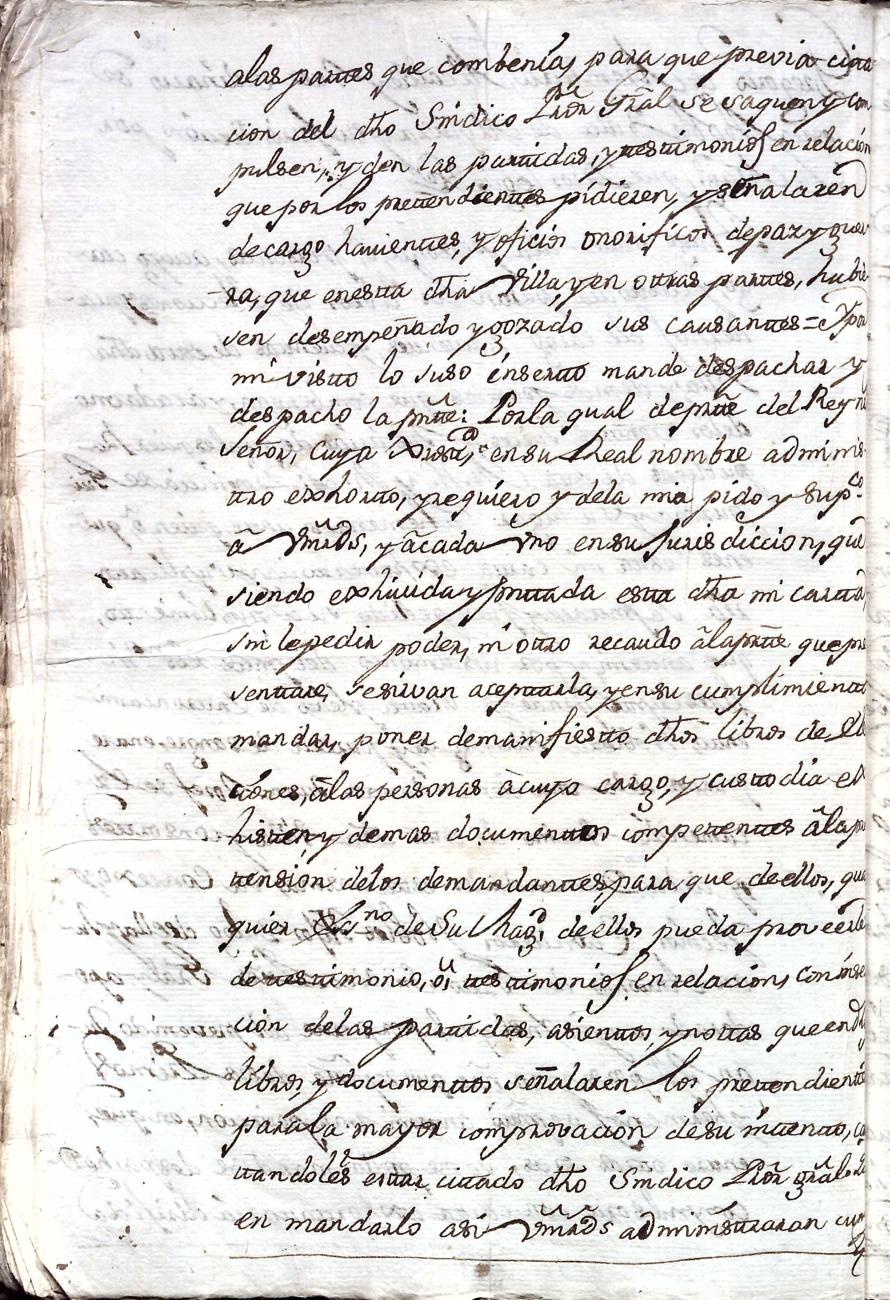 alas parttes que combenía, para que previa citta
cion del dho Síndico Pror Gral se saquen, y com
pulsen, y den las parttidas, y testtimonios en relacion
que por los prettendienttes pidieren, y señalaren
de cargo havienttes, y oficios onoríficos de paz y guer
ra, que en estta dha Villa, y en ottras parttes, hubie
sen desempeñado y gozado sus causanttes = Y por
mi vistto lo suso ínsertto mande despachar y
despacho la pntte: Por la qual de partte del Rey nro
Señor, cuya Justta, en su Real nombre adminis
ttro exhortto, y requiero y de la mia pido y supco
â Vmrds, y â cada Vno en su Jurisdiccion, que
siendo exhivida y pnttada estta dha mi cartta
sin le pedir poder, ni ottro recaudo â la partte que pre
senttare, se sirvan acepttarla, y en su cumplimientto
mandar, poner de manifiestto dhos libros de Elec
ciones, â las personas â cuyo cargo, y custtodia e
histten, y demas documenttos compettenttes â la pre
ttensión de los demandanttes, para que de ellos, qual
quier Essno de Su Magd de ellos pueda proveerles
de testtimonio, ò testtimonios en relacion, con inser
ción de las parttidas, asienttos, y nottas que en dhos
libros, y documenttos señalaren los prettendienttes
para la mayor comprovación de su inttentto, cons
ttandoles esttar cittado dho Síndico Pror gral
en mandarlo asi Vmrds adminísttraran cum